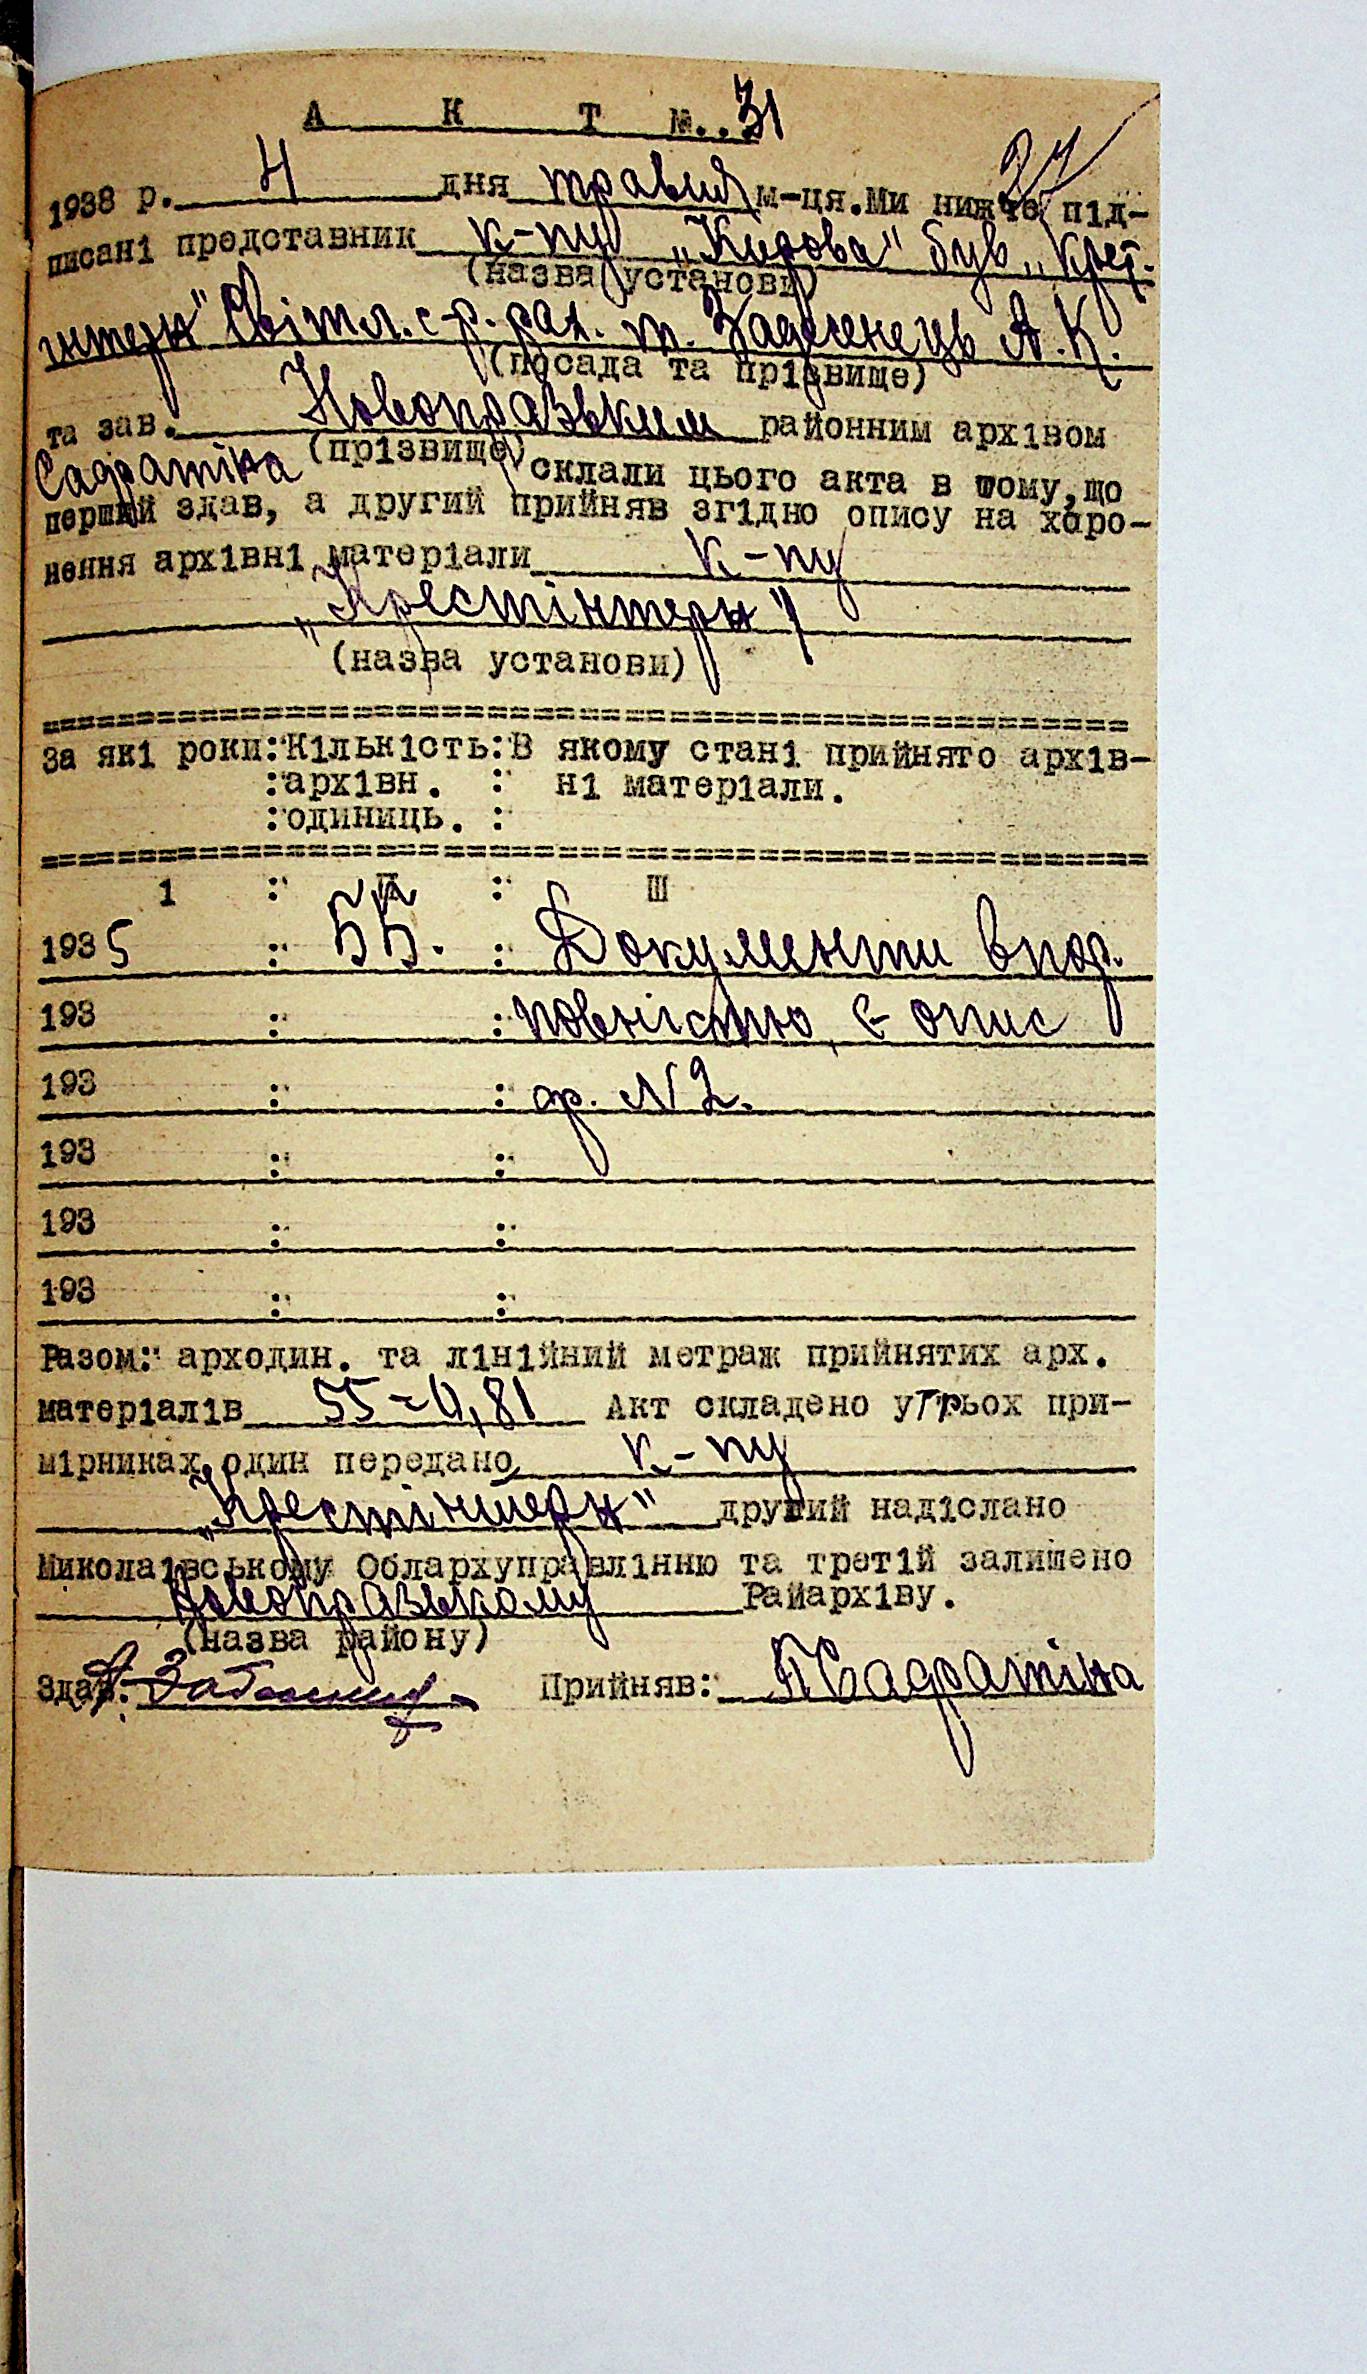 А К Т №..31
27
1938 р. 4 дня травня м-ця.Ми нижче під-
писані представник к-пу „Кирова" був „Крест-
(назва установи)
інтерн" Світл. с-р. рах. т. А.К.
(посада та прізвище)
та зав. Новопразьким районним архівом
(прізвище)
Садратіна склали цього акта в тому,що
перший здав, а другий прийняв згідно опису на хоро-
нення архівні матеріали к-пу
„Крестінтерн"
(назва установи)
За які роки:Кількість:В якому стані прийнято архів-
:архівн. : ні матеріали.
:одиниць. :
1 : II : Ш
1935 : 55. : Документи впор.
193 : : повністю, є опис
193 : : ф. N 2.
193 : :
193 : :
193 : :
Разом: арходин. та лінійний метраж прийнятих арх.
матеріалів 55=0,81 Акт складено у трьох при-
мірниках, один передано к-пу
„Крестінтерн" другий надіслано
Миколаївському Облархуправлінню та третій залишено
Новопразькому Райархіву.
(назва району)
Здав: Прийняв: Садратіна